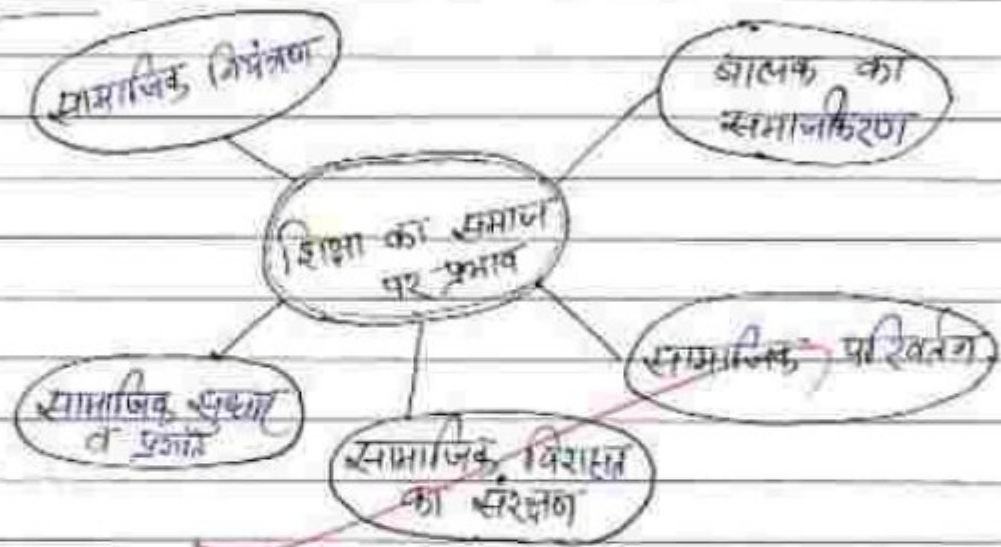 सामाजिक नियंत्रण
बालक का
समाजीकरण
शिक्षा का समाज
पर प्रभाव
सामाजिक सुधार
व प्रगति
सामाजिक विरासत
का संरक्षण
सामाजिक परिवर्तन